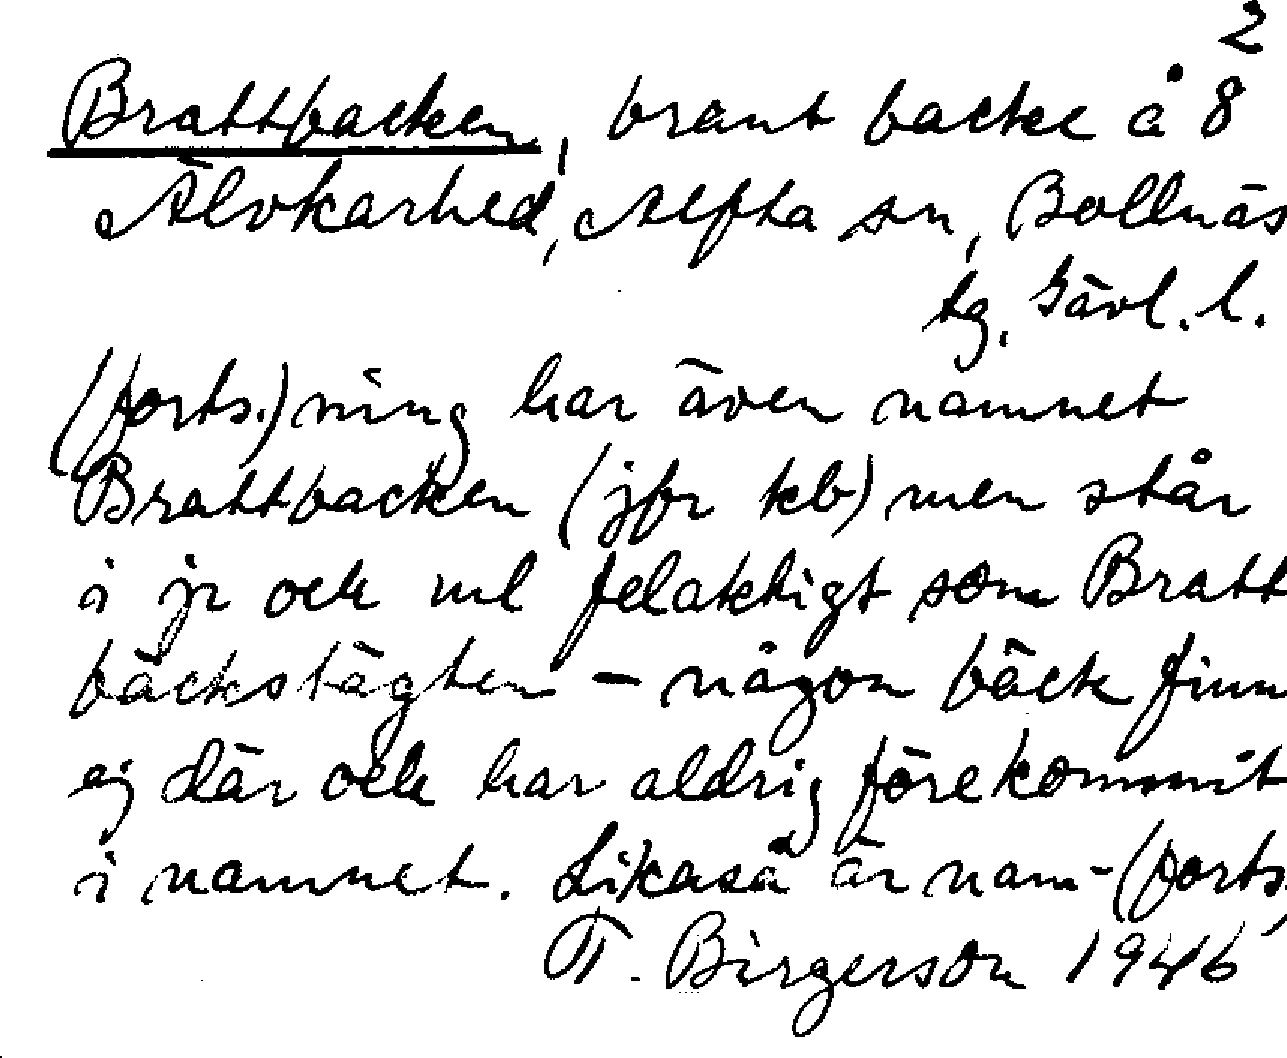 2
Brattbacken, brant backe å 8
Älvkarhed, Alfta sn, Bollnäs
tg. Gävl. l.
(forts.) ning har även namnet
Brattbacken (jfr kb) men står
i jr och ml felaktigt som Bratt
bäckstägten – någon bäck finn
ej där och har aldrig förekommit
i namnet. Likaså är nam- (forts.
T. Birgerson 1946